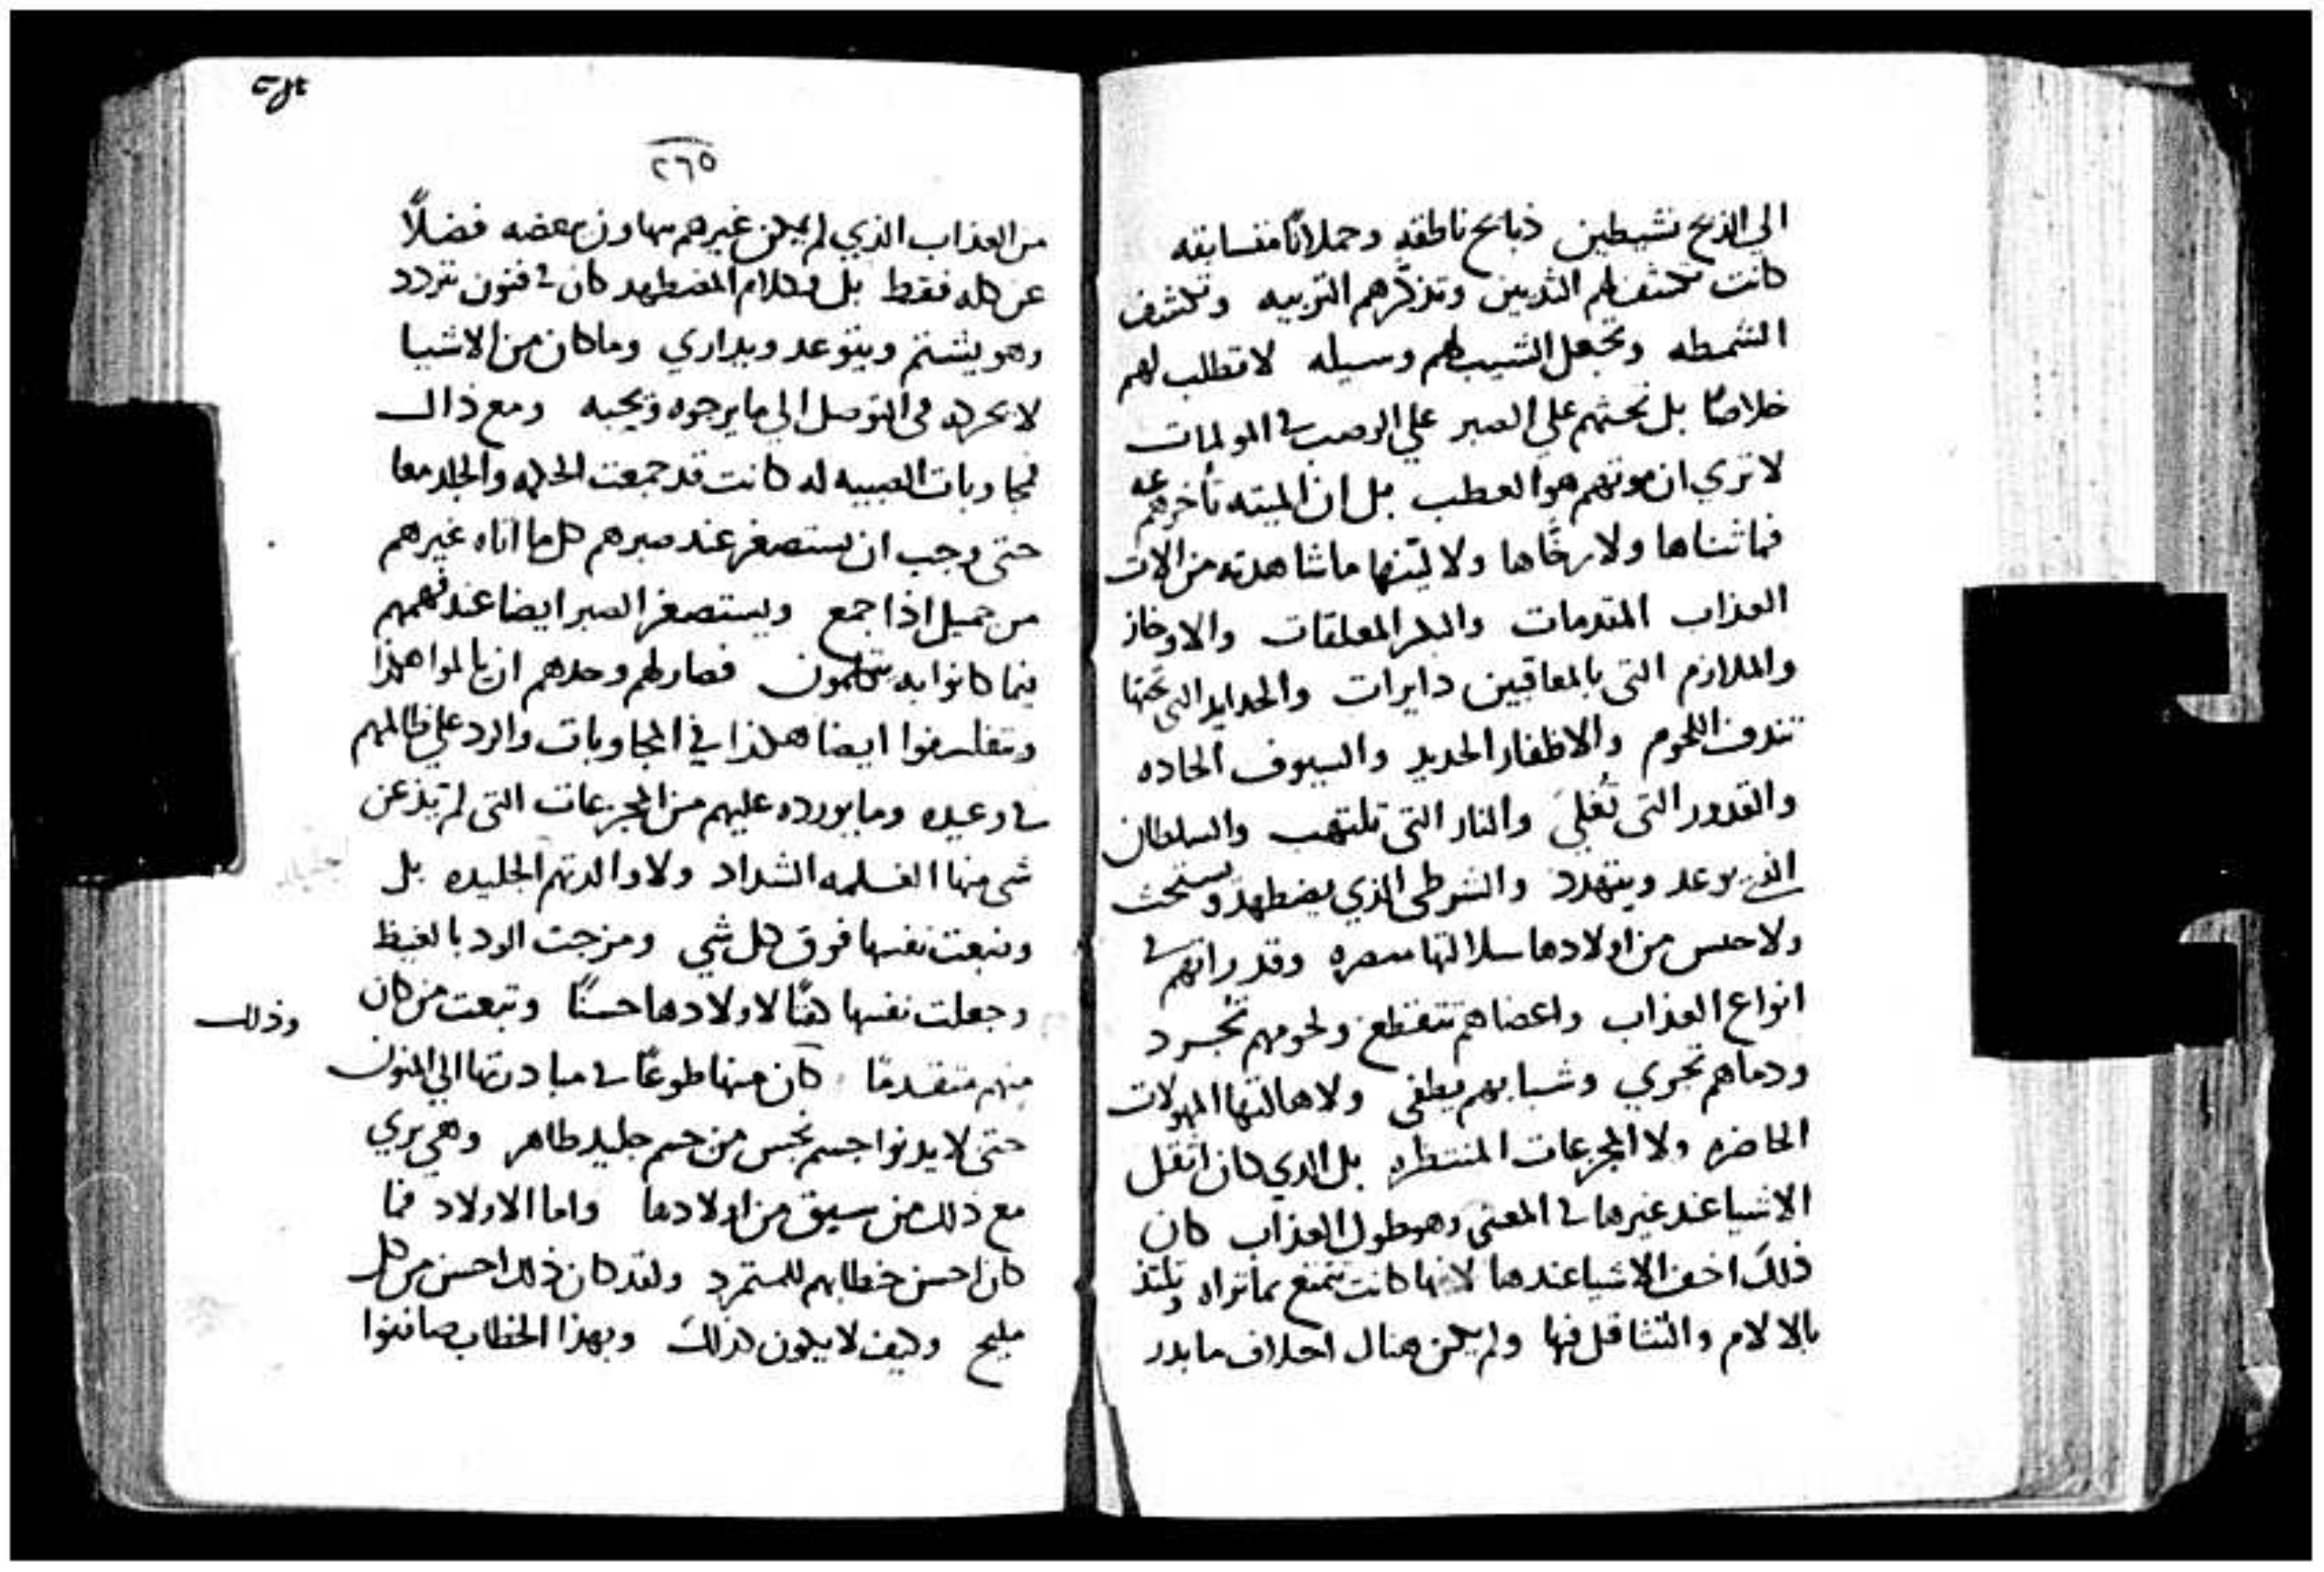 الي الذبح نشيطين ذبايح ناطقه وحملانًا متسابقه
كانت تكشف لهم الثديين وتذكرهم التربيه وتكشف
الشمطه وتجعل الشيب لهم وسيله لا تطلب لهم
خلاصًا بل تحثهم علي الصبر علي الوصب في المولمات
لا تري ان موتهم هو العطب بل ان الميته تأخرهم عنه
فما ثناها ولا رخّاها ولا ليّنها ما شاهدته من الات
العذاب المتقدمات والبكر المعلقات والاوخاز
والملازم التي بالمعاقبين دايرات والحدايد التي تحتها
تندف اللحوم والاظفار الحديد والسيوف الحاده
والقدور التي تُغلي والنار التي تلتهب والسلطان
الذي يوعد ويتهدد والشرطي الذي يضطهد ويستحث
ولا من اولادها وقد راتهم في
انواع العذاب واعضاهم تتقطع ولحومهم تجرد
ودماهم تجري وشبابهم يطفي ولا هالتها المهولات
الحاضره ولا المجزعات المنتظره بل الذي كان اثقل
الاشيا عند غيرها في المعني وهو طول العذاب كان
ذلك اخف الاشيا عندها لانها كانت تتمتع بما تراه وتلتذ
بالالام والتثاقل فيها ولم يكن هناك اختلاف ما بدر
٢٦٥
من العذاب الذي لم يكن غيرهم يتهاون ببعضه فضلًا
عن كله فقط بل وكلام المضطهد كان في فنون تتردد
وهو يشتم ويتوعد ويداري وما كان من الاشيا
لا يحركه في التوصل الي ما يرجوه ويحبه ومع ذاك
فمجاوبات الصبيه له كانت قد جمعت الحكمه والجلد معا
حتي وجب ان يستصغر عند صبرهم كل ما اتاه غيرهم
من جميل اذا جمع ويستصغر الصبر ايضا عند فهمهم
فيما كانوا به يتكلمون فصار لهم وحدهم ان يالموا هكذا
ويتفلسفوا ايضا هكذا في المجاوبات والرد علي ظالمهم
في وعيده وما يورده عليهم من المجزعات التي لم تذعن
شي منها الفتيه الشداد ولا والدتهم الجليده بل
وضعت نفسها فوق كل شي ومزجت الود بالغيظ
وجعلت نفسها كفنًا لاولادها حسنًا وتبعت من كان
منهم متقدمًا كان منها طوعًا في مبادرتها الي المنون
حتي لا يدنوا جسم نجس من جسم جليد طاهر وهي تري
مع ذلك من سبق من اولادها واما الاولاد فما
كان احسن خطابهم للمتمرد ولقد كان ذلك احسن من كل
مليح وكيف لا يكون كذلك وبهذا الخطاب صافنوا
وذلك